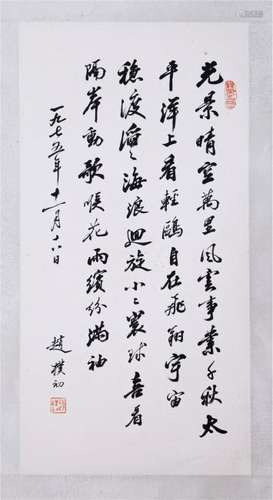 光景晴空萬里風雲事業千秋太
平洋上看輕鷗自在飛翔宇宙
穩渡滄海浪迴旋小小寰球喜看
隔岸動歌喉花雨繽紛滿袖
一九七五年十一月十六日
趙樸初